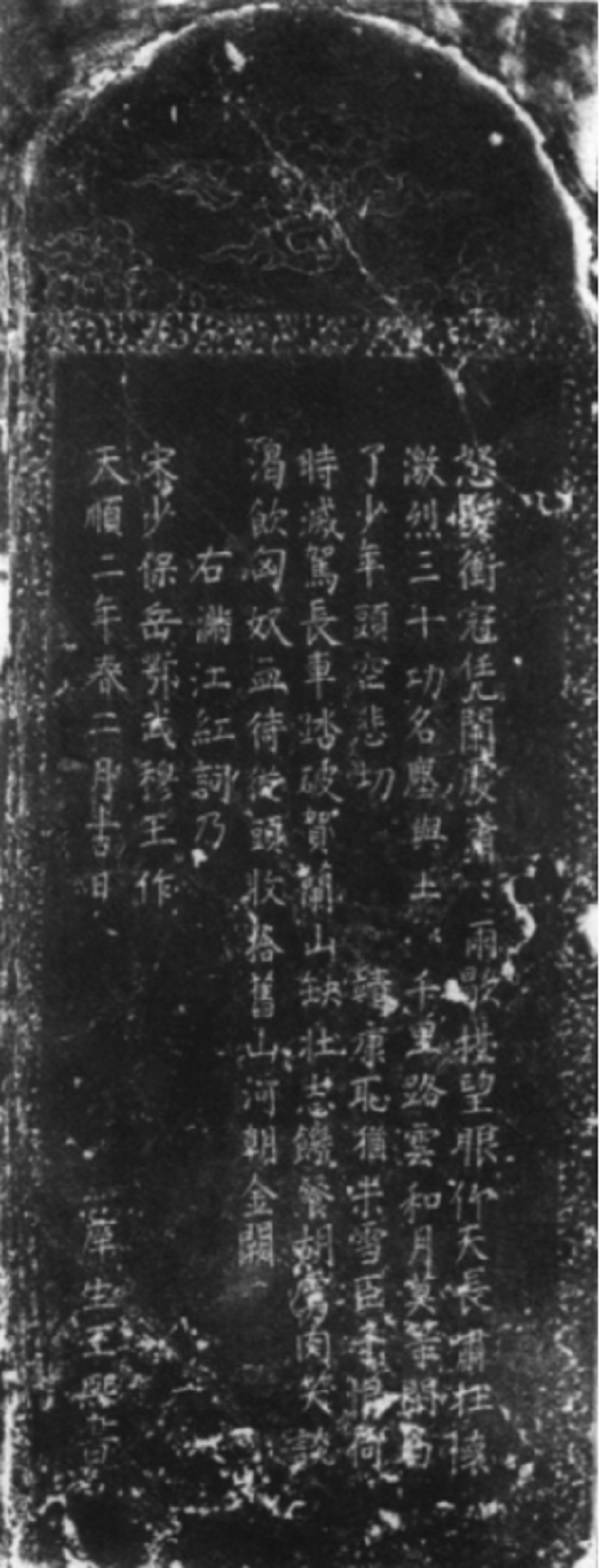 怒髮衝冠凭闌處蕭〻雨歇擡望眼仰天長嘯壯懷
激烈三十功名塵與土八千里路雲和月莫等閑白
了少年頭空悲切 靖康恥猶未雪臣子恨何
時滅駕長車踏破賀蘭山缺壯志饑餐胡虜肉笑談
渴飲匈奴血待從頭收拾舊山河朝金闕
右滿江紅詞乃
宋少保岳鄂武穆王作
天順二年春二月吉日 庠生王熙書